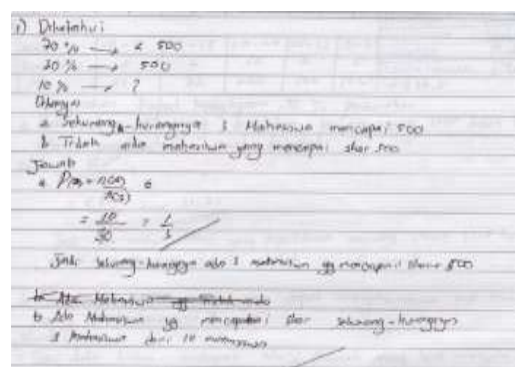 1) Diketahui
70 % → < 500
20 % → 500
10 % → ?
Ditanya
a. Sekurang-kurangnya 1 Mahasiswa mencapai 500
b. Tidak ada mahasiswa yang mencapai skor 500
Jawab
a. P(A) = n(A)
n(S)
= 10
30
= 1
3
Jadi sekurang-kurangnya ada 1 mahasiswa yg mencapai skor 500
b. Ada Mahasiswa yg
b. Ada Mahasiswa yg mencapai skor sekurang-kurangnya
1 mahasiswa dari 10 mahasiswa